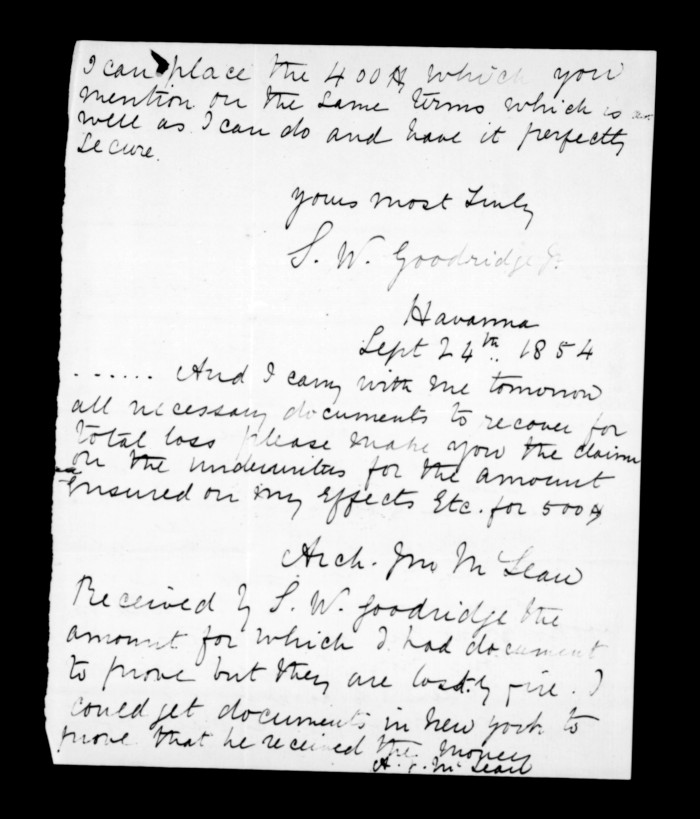 I can place the 400$ which you
mention on the same terms which is as
well as I can do and have it perfectly
Secure.
yours most truly
S. W. Goodridge Jr.
Havanna
Sept 24th. 1854
...... And I carry with me tomorrow
all necessary documents to recover for
total loss please make you the claim
on the underwriters for the amount
ensured on my Effects Etc. for 500$
Arch. Jno McLean
Received by S. W. Goodridge the
amount for which I had document
to prove but they are lost by fire. I
could get documents in New york to
prove that he received the money
A. J. McLean